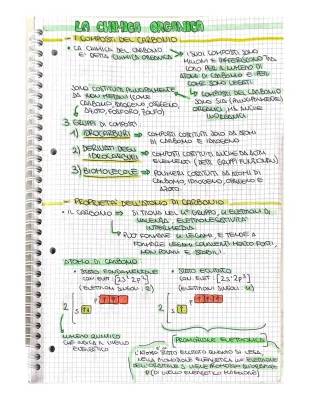 LA CHIMICA ORGANICA
- I COMPOSTI DEL CARBONIO
• LA CHIMICA DEL CARBONIO
È DETTA CHIMICA ORGANICA
I SUOI COMPOSTI SONO
MILIONI E DIFFERISCONO TRA
LORO PER IL NUMERO DI
ATOMI DI CARBONIO E PER
COME SONO LEGATI
SONO COSTITUITI PRINCIPALMENTE
DA NON METALLI (COME
CARBONIO, IDROGENO, OSSIGENO,
AZOTO, FOSFORO, ZOLFO)
COMPOSTI DEL CARBONIO
SONO SIA (PRINCIPALMENTE)
ORGANICI, MA ANCHE
INORGANICI
3 GRUPPI DI COMPOSTI
1) IDROCARBURI → COMPOSTI COSTITUITI SOLO DA ATOMI
DI CARBONIO E IDROGENO
2) DERIVATI DEGLI IDROCARBURI → COMPOSTI COSTITUITI ANCHE DA ALTRI
ELEMENTI (DETTI GRUPPI FUNZIONALI)
3) BIOMOLECOLE → POLIMERI COSTITUITI DA ATOMI DI
CARBONIO, IDROGENO, OSSIGENO E
AZOTO
- PROPRIETÀ DELL'ATOMO DI CARBONIO
• IL CARBONIO → SI TROVA NEL GRUPPO, 4 ELETTRONI DI
VALENZA, ELETTRONEGATIVITÀ
INTERMEDIA
→ PUÒ FORMARE 4 LEGAMI, E TENDE A
FORMARE LEGAMI COVALENTI MOLTO FORTI,
NON POLARI E STABILI
ATOMO DI CARBONIO
• STATO FONDAMENTALE
CON. ELET.: [2s² 2p²]
(ELETTRONI SINGOLI: 2)
• STATO ECCITATO
CON. ELET.:
(ELETTRONI SINGOLI: 4)
2
P
S
2
P
S
NUMERO QUANTICO
CHE INDICA IL LIVELLO
ENERGETICO
PROMOZIONE ELETTRONICA